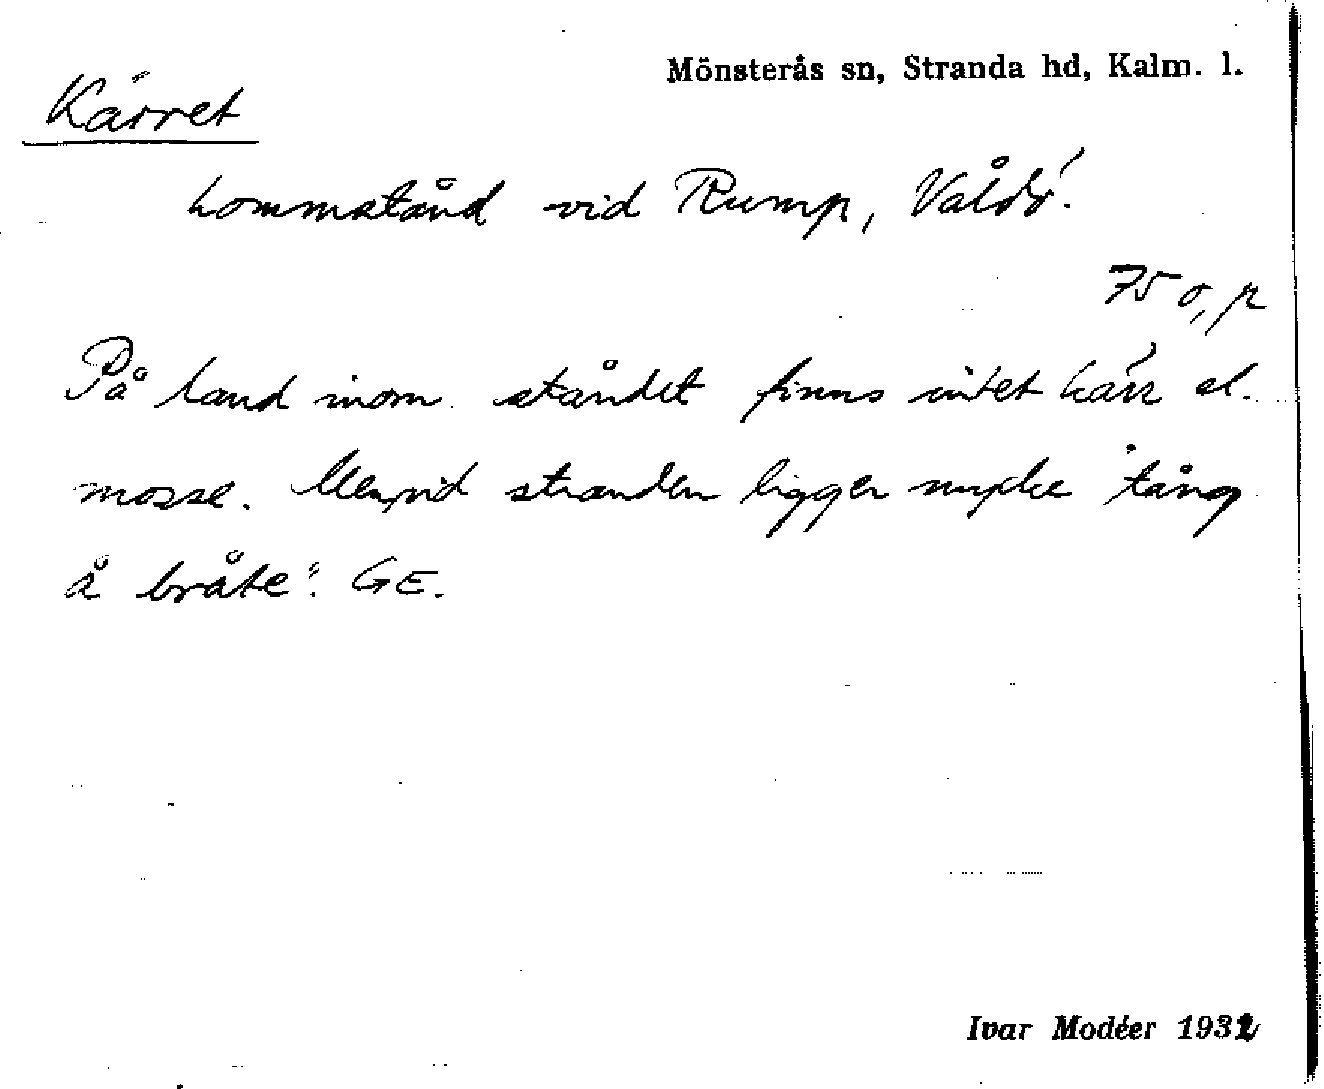 Mönsterås sn, Stranda hd, Kalm. l.
Kärret
hommstånd vid Rump, Våldö.
75 o, p
På land inom ståndet finns intet kärr el.
mosse. Men vid stranden ligger mycke "tång
å bråte". GE.
Ivar Modéer 1932